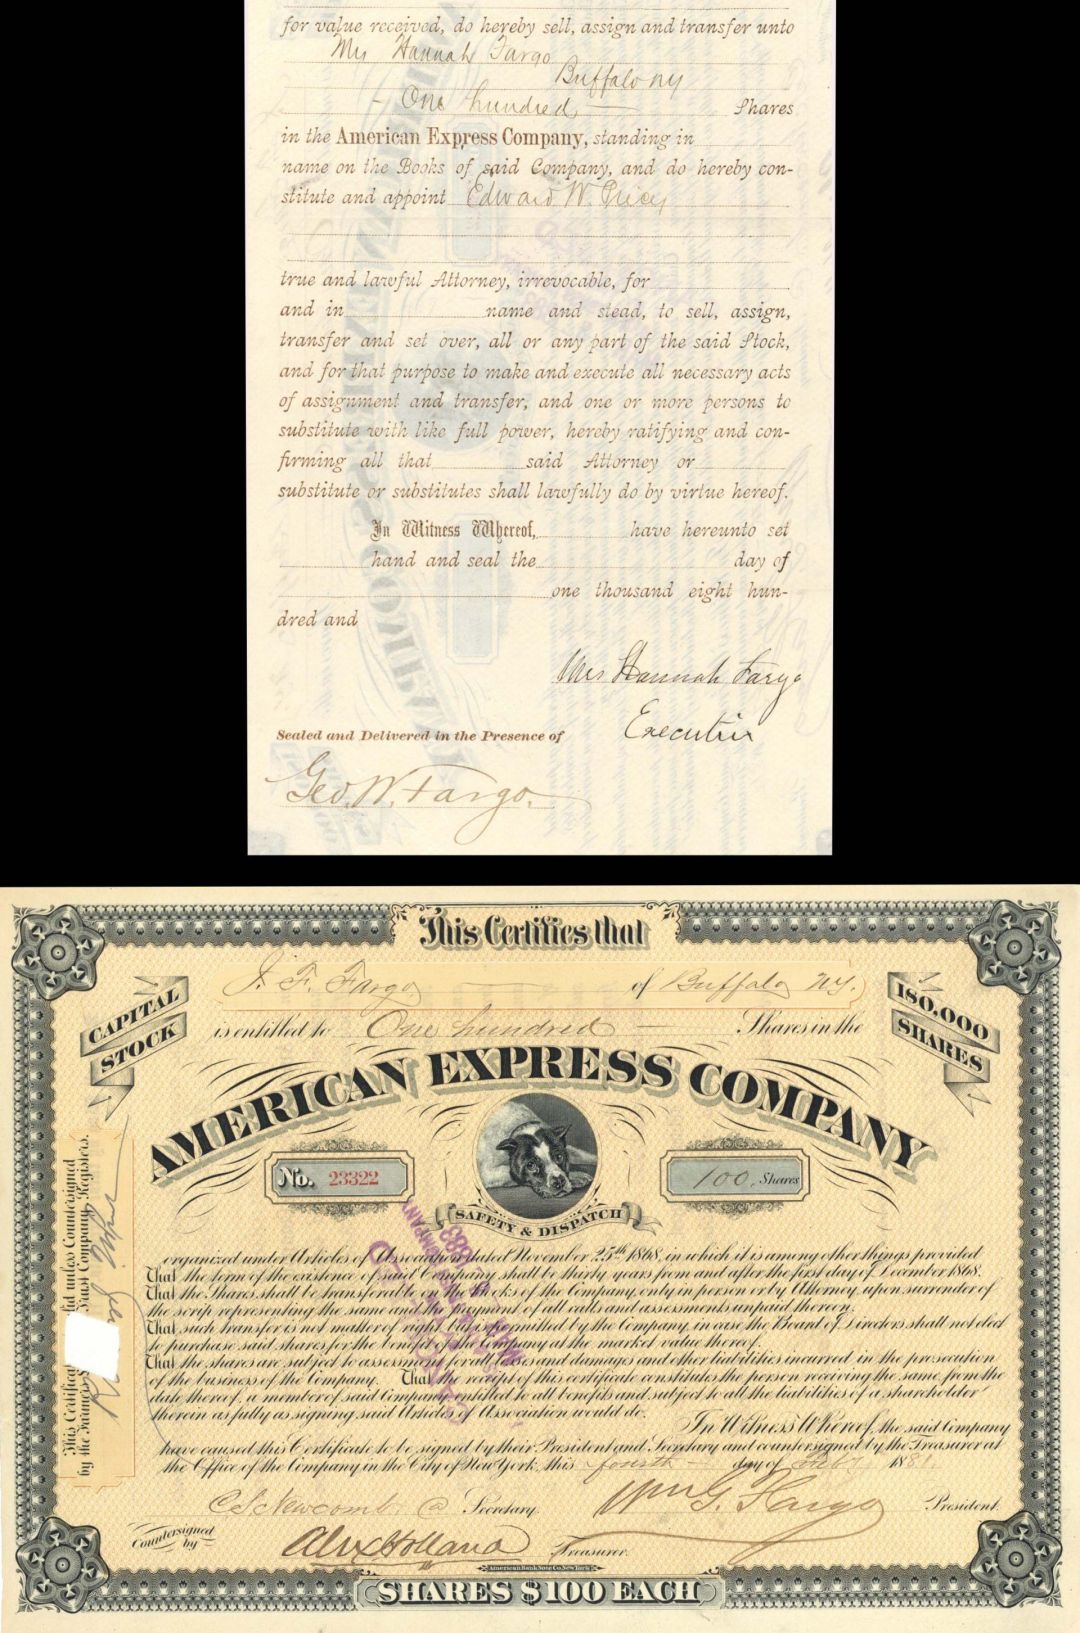 for value received, do hereby sell, assign and transfer unto
Mrs Hannah Fargo
Buffalo NY
- One hundred - Shares
in the American Express Company, standing in
name on the Books of said Company, and do hereby con-
stitute and appoint Edward W. Pricy
true and lawful Attorney, irrevocable, for
and in name and stead, to sell, assign,
transfer and set over, all or any part of the said Stock,
and for that purpose to make and execute all necessary acts
of assignment and transfer, and one or more persons to
substitute with like full power, hereby ratifying and con-
firming all that said Attorney or
substitute or substitutes shall lawfully do by virtue hereof.
In Witness Whereof, have hereunto set
hand and seal the day of
one thousand eight hun-
dred and
Mrs Hannah Fargo
Executrix
Sealed and Delivered in the Presence of
Geo. W. Fargo.
This Certifies that
J. F. Fargo — of Buffalo NY.
CAPITAL STOCK
180,000 SHARES
is entitled to One hundred — Shares in the
AMERICAN EXPRESS COMPANY
No. 23322
100 Shares
SAFETY & DISPATCH
organized under Articles of Association dated November 25th 1868, in which it is among other things provided
That the term of the existence of said Company shall be thirty years from and after the first day of December 1868.
That the Shares shall be transferable on the Books of the Company, only in person or by Attorney, upon surrender of
the scrip representing the same and the payment of all calls and assessments unpaid thereon.
That such transfer is not matter of right, but is permitted by the Company, in case the Board of Directors shall not elect
to purchase said shares for the benefit of the Company at the market value thereof.
That the shares are subject to assessment for all losses and damages and other liabilities incurred in the prosecution
of the business of the Company. That the receipt of this certificate constitutes the person receiving the same from the
date thereof, a member of said Company, entitled to all benefits and subject to all the liabilities of a shareholder
therein as fully as signing said Articles of Association would do. In Witness Whereof, the said Company
have caused this Certificate to be signed by their President and Secretary and countersigned by the Treasurer at
the Office of the Company in the City of New York, this fourth day of Feby 1881
C S Newcomb Secretary.
Wm G. Fargo President.
Countersigned by Alex Holland Treasurer.
American Bank Note Co. New York
SHARES $100 EACH
This Certificate
unless Countersigned
by the Farmers
Trust Company, Registers.